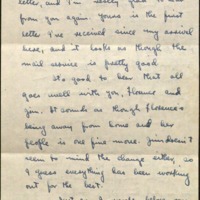 letter, and I'm really glad to hear
from you again. Yours is the first
letter I've received since my arrival
here, and it looks as though the
mail service is pretty good
It's good to hear that all
goes well with you, Florence and
Jim. It sounds as though Florence's
being away from home and her
people is one fine move. Jim doesn't
seem to mind the change either, so
I guess everything has been working
out for the best.